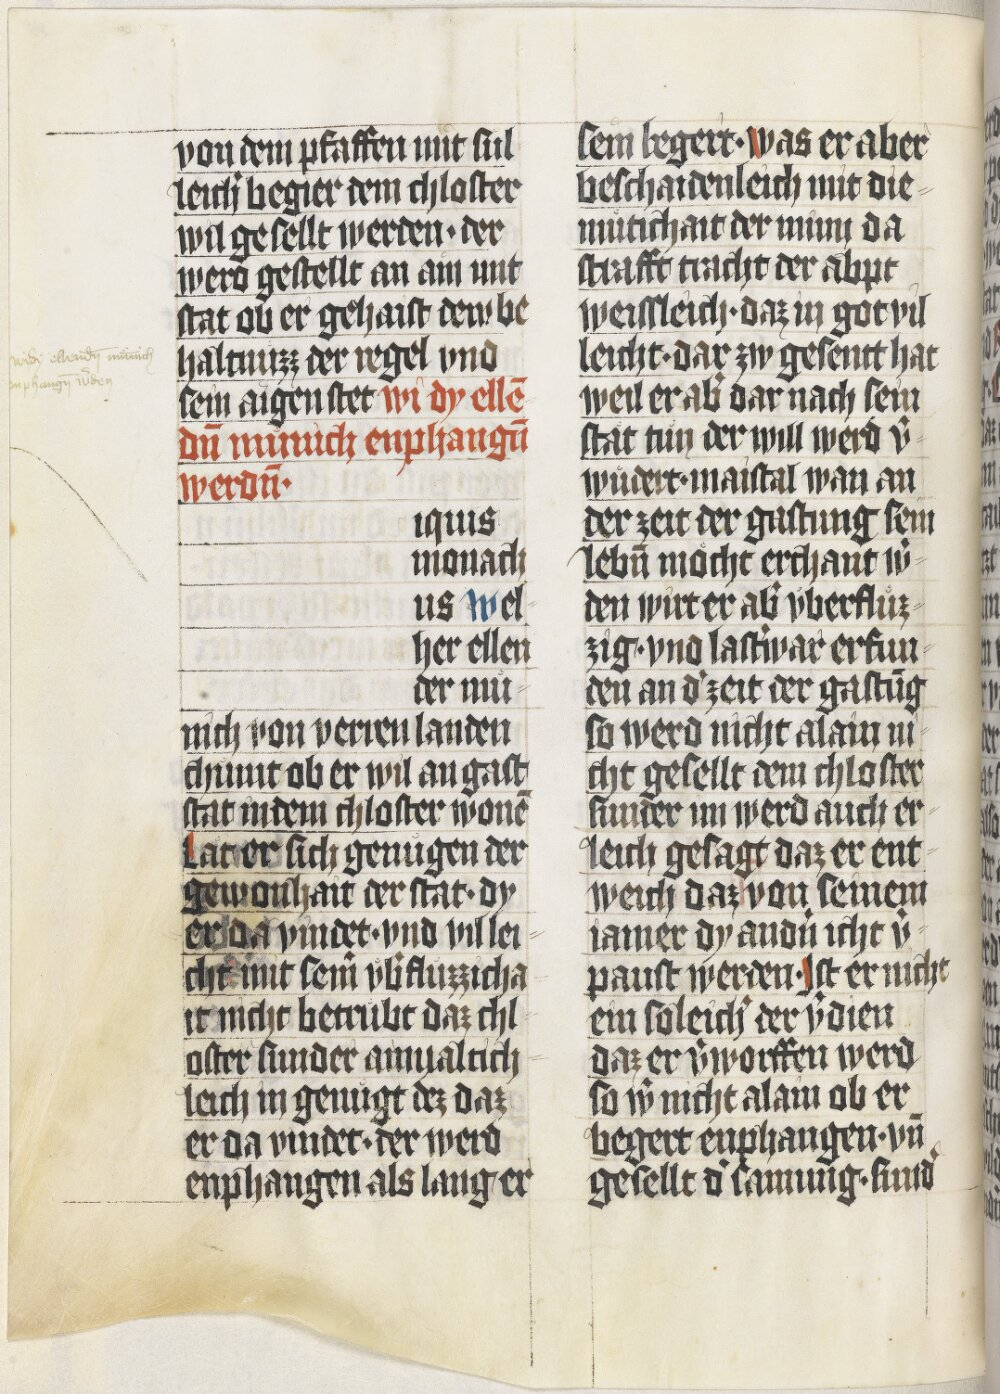 von dem pfaffen mit sul
leich begier dem chloster
wil gesellt werden · der
werd gestellt an ain mit
stat ob er gehaist dew be
haltnuzz der regel vnd
sein aigen stet wi dy ellē
dn̄ munich enphangn̄
werdn̄ ·
iquis
monach
us Wel
her ellen
der mu
nich von verren landen
chumt ob er wil an gast
stat in dem chloster wonē
Lat er sich genugen der
gewonhait der stat · dy
er da vindet · vnd vil lei
cht mit sein̄ vb̄fluzzicha
it nicht betrubt daz chl
oster sunder ainualtich
leich in genugt dez daz
er da vindet · der werd
enphangen als lang er
sein begert · Was er aber
beschaidenleich mit die
mutichait der minn da
strafft tracht der abpt
weissleich · daz in got vil
leicht · dar zw gesentt hat
weil er ab̄ dar nach sein
stat tun der will werd v̄
wudert · maistal wan an
der zeit der gastung sein
lebn̄ mocht erchant w̄
den wirt er ab̄ vberfluz
zig · vnd lastwar erfun
den an d̄ zeit der gastūg
so werd nicht alain ni
cht gesellt dem chloster
sunder im werd auch er
leich gesagt daz er ent
weich daz von seinem
iamer dy andn̄ icht v̄
paust werden · Ist er nicht
ein soleich̄ der v̄dien
daz er v̄worffen werd
so w̄ nicht alain ob er
begert enphangen · vn̄
gesellt d̄ samnūg · sund̄